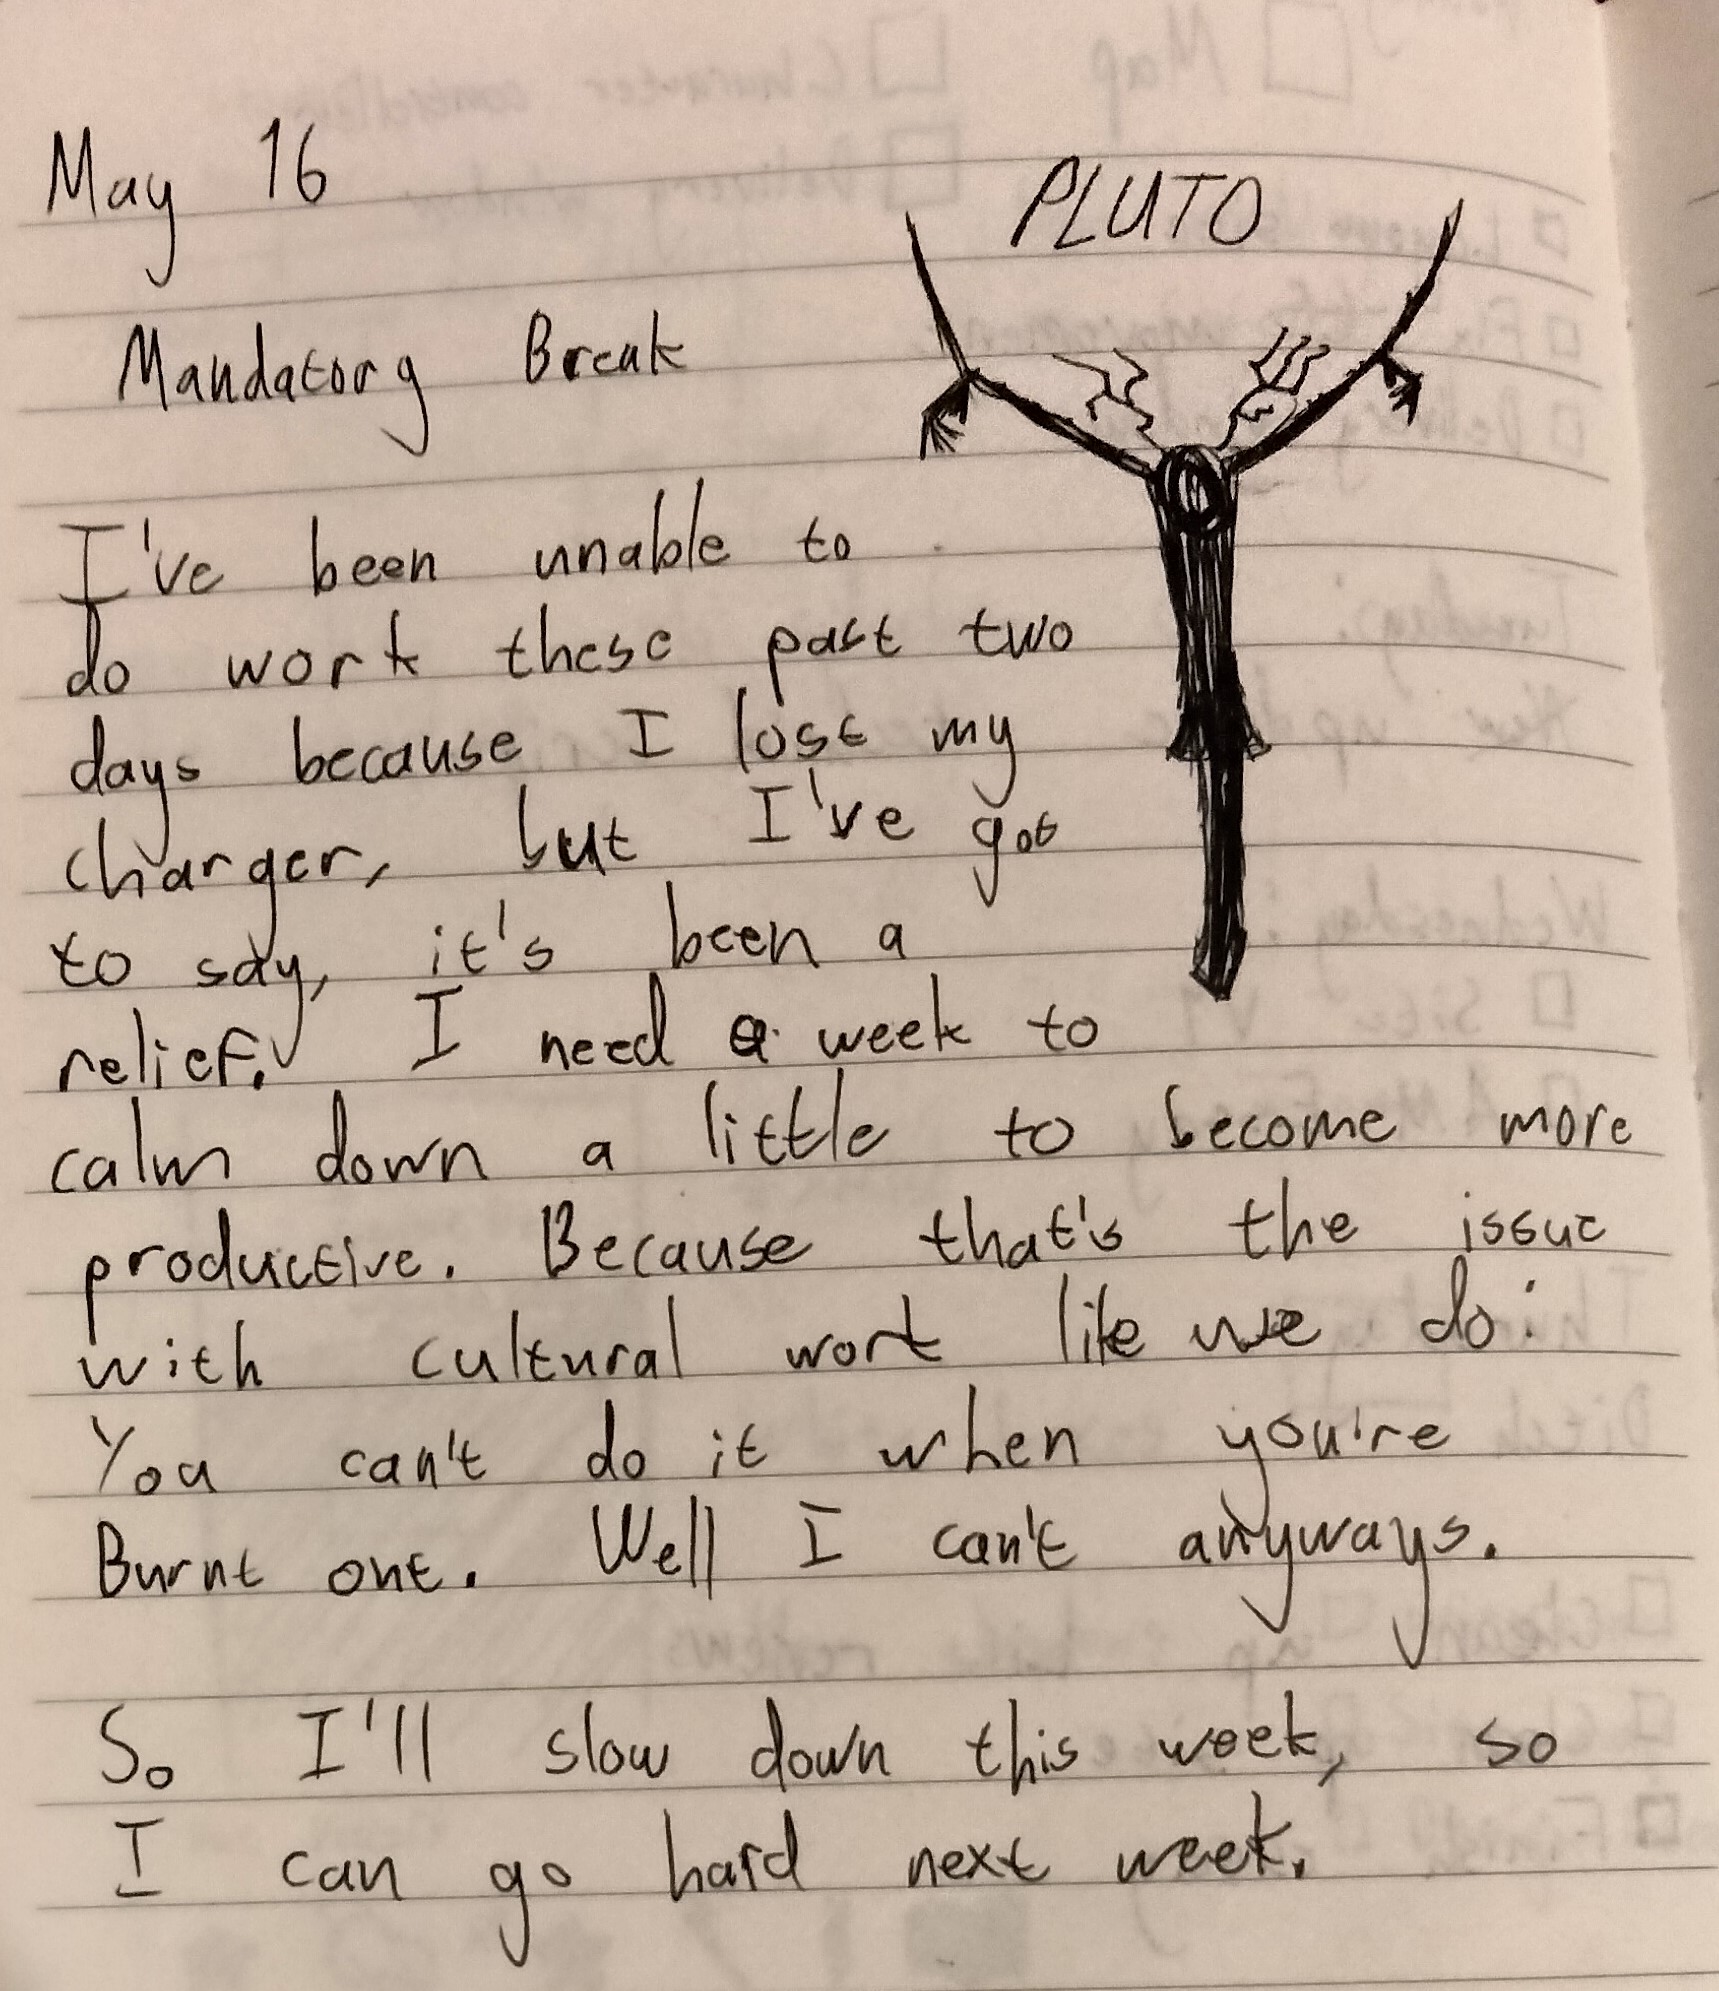 May 16
PLUTO
Mandatory Break
I've been unable to
do work these past two
days because I lost my
charger, but I've got
to say, it's been a
relief. I need a week to
calm down a little to become more
productive. Because that's the issue
with cultural work like we do:
You can't do it when you're
Burnt out. Well I can't anyways.
So I'll slow down this week, so
I can go hard next week.